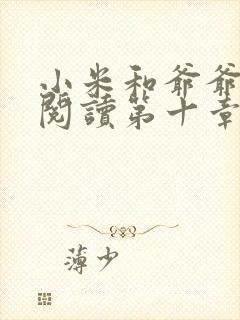 小米和爺爺
閱讀第十章
薄少